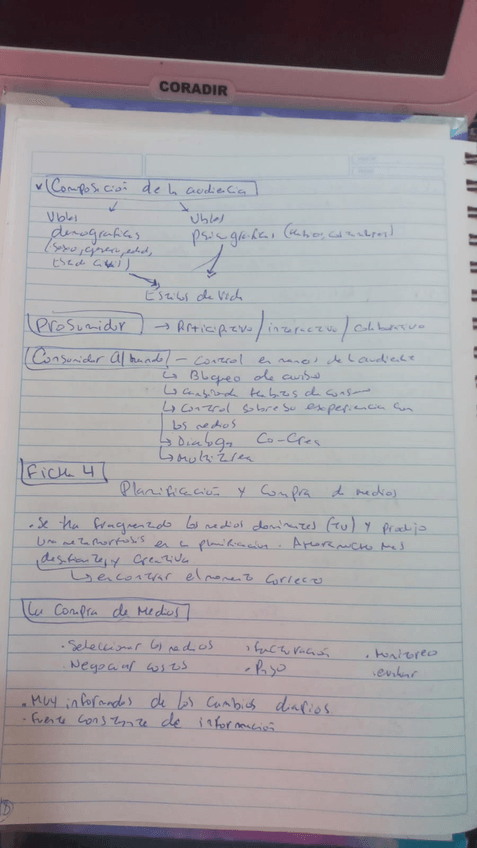 CORADIR
Composición de la audiencia
Vbles
demograficas
(sexo, genero, edad,
Estado Civil)
Vbles
psicograficas (habitos, costumbres)
Estilos de vida
Prosumidor → Participativo / interactivo / colaborativo
Consumidor al mando - Control en manos de la audiencia
↳ Bloqueo de aviso
↳ cambiando habitos de consumo
↳ control sobre su experiencia con
los medios
↳ Dialoga Co-Crea
↳ Multitarea
Ficha 4
Planificación y compra de medios
. Se ha fragmentado los medios dominantes (TV) y produjo
una metamorfosis en la planificación. Ahora mucho mas
desafiante y creativa
↳ encontrar el momento correcto
La Compra de Medios
. Seleccionar los medios . Facturación . Monitoreo
. Negociar costos . Pago . evaluar
. Muy informados de los cambios diarios.
. Fuente constante de información